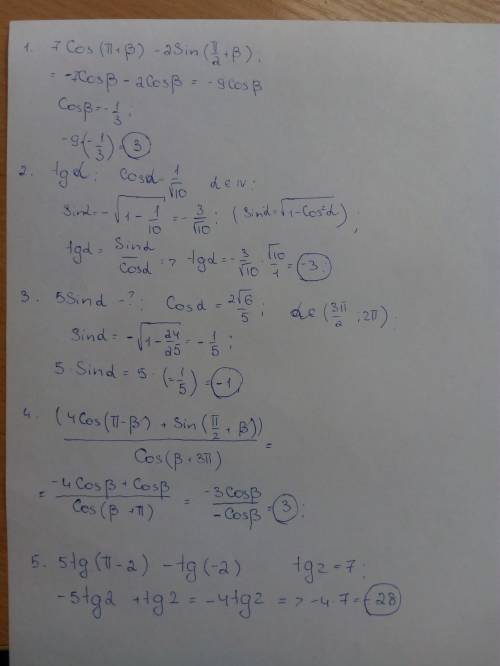 1. 7Cos(π+β) -2Sin(π/2+β);
= -7Cosβ - 2Cosβ = -9Cosβ
Cosβ = -1/3;
-9·(-1/3) = 3
2. tgα: Cosα = 1/√10 α ∈ IV;
Sinα = -√(1 - 1/10) = -3/√10; (Sinα = √(1-Cos²α));
tgα = Sinα/Cosα => tgα = -3/√10 · √10/1 = -3;
3. 5Sinα -?; Cosα = 2√6/5; α ∈ (3π/2; 2π);
Sinα = -√(1 - 24/25) = -1/5;
5·Sinα = 5·(-1/5) = -1,
4. (4Cos(π-β) + Sin(π/2 + β))/Cos(β+3π) =
= (-4Cosβ + Cosβ)/Cos(β+π) = -3Cosβ/-Cosβ = 3;
5. 5tg(π-2) - tg(-2) tg2 = 7;
-5tg2 + tg2 = -4tg2 => -4·7 = -28